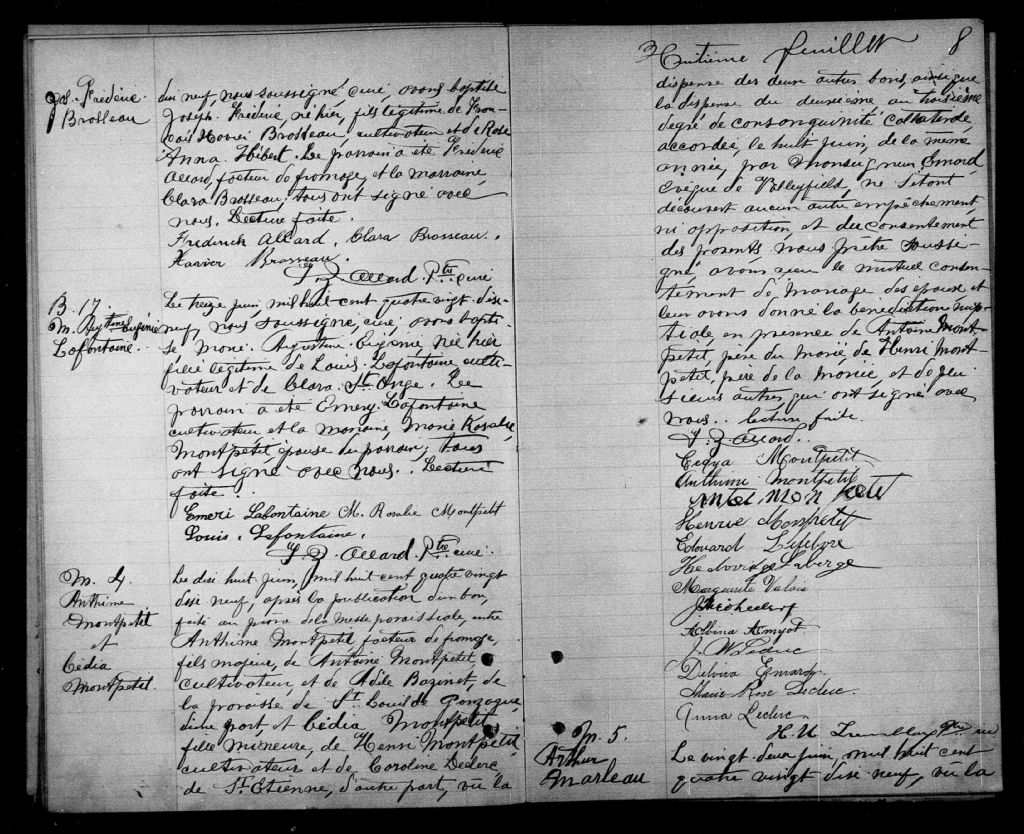 Jos. Frédéric
Brosseau
dixneuf, nous soussigné curé, avons baptisé
Joseph Frédéric, né hier, fils légitime de Fran-
cois Henri Brosseau, cultivateur et de Rose
Anna Hébert. Le parrain a été Fréderic
Allard, facteur de fromage, et la marraine,
Clara Brosseau. tous ont signé avec
nous. Lecture faite.
Frederick Allard. Clara Brosseau.
Xavier Brosseau.
Allard. Ptre curé
B. 17.
M. Augstine Eugénie
Lafontaine.
Le treize juin, mil huit cent quatre vingt dix-
neuf, nous soussigné, curé, avons bapti-
sé Marie. Augustine. Eugénie, née hier
fille légitime de Louis. Lafontaine culti-
vateur et de Clara. St. Onge. Le
parrain a été Emery. Lafontaine
cultivateur et la marraine, Marie Rosalie,
Montpetit, épouse du parrain. tous
ont signé avec nous. Lecture
faite.
Emeri Lafontaine M. Rosalie Montpetit
Louis. Lafontaine.
Allard. Ptre curé.
M. 4.
Anthime
Montpetit
et
Cédia
Montpetit.
Le dix huit juin, mil huit cent quatre vingt
dix neuf, après la publication d'un ban,
faite au prone de la messe paroissiale, entre
Anthime Montpetit, facteur de fromage,
fils majeur, de Antoine Montpetit,
cultivateur, et de Adèle Bazinet, de
la paroisse de St. Louis de Gonzague,
d'une part, et Cédia Montpetit,
fille mineure, de Henri Montpetit
cultivateur et de Caroline Leclerc
de St. Etienne, d'autre part, vû la
Huitième feuillet 8
dispense des deux autres bans, ainsi que
la dispense du deuxième au troisième
degré de consanguinité collatérale,
accordée, le huit juin, de la même
année, par Monseigneur Emard,
Evêque de Valleyfield, ne s'étant
découvert aucun autre empêchement
ni opposition et du consentement
des parents. nous prêtre sousse-
gné, avons reçu le mutuel consen-
tement de mariage des époux et
leur avons donné la bénédiction nup-
tiale, en présence de Antoine Mont-
petit, père du marié de Henri Mont-
petit, père de la mariée, et de plu
sieurs autres qui ont signé avec
nous. lecture faite.
Allard.
Montpetit
Anthime Montpetit
Henrie Monpetit
Edouard Lefebvre
Laberge
Marguerite Valois
Albina Amyot
J. W. Leduc
Delvina Emard
Marie Rose Leclerc
Anna Leclerc
H. U. Ptre
M. 5.
Arthur
Marleau
Le vingt deux juin, mil huit cent
quatre vingt dix neuf, vû la